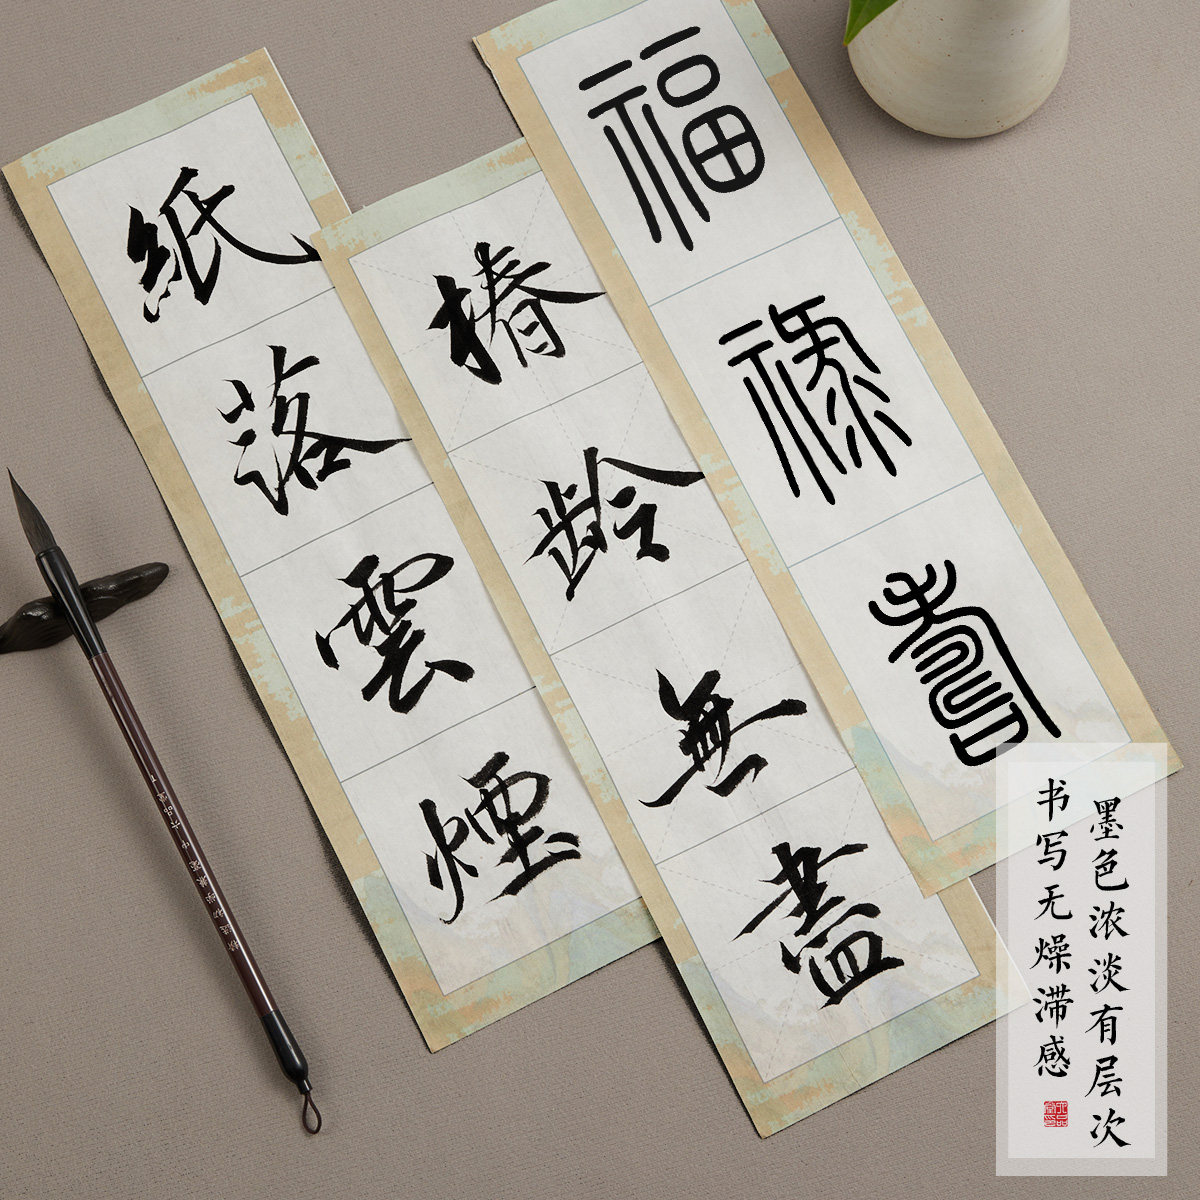 紙落雲煙
椿齡無盡
福祿壽
墨色浓淡有层次
书写无燥滞感